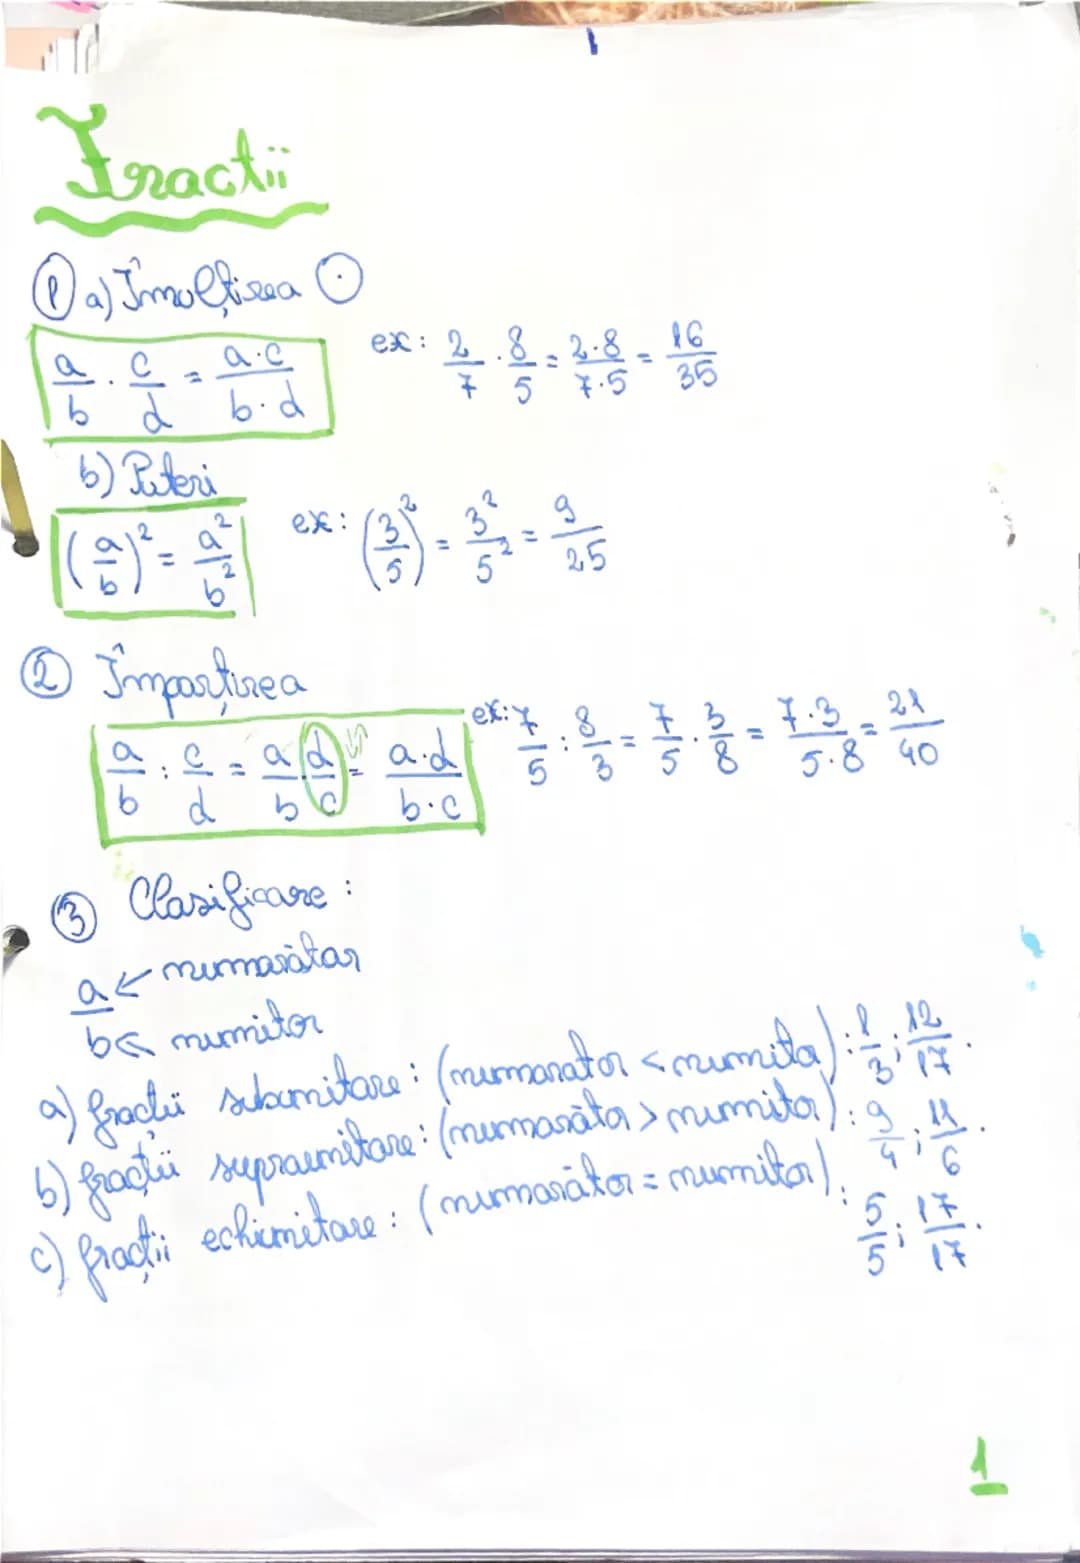 Fractii
① a) Înmulțirea ⊙
a/b · c/d = a·c/b·d ex: 2/7 · 8/5 = 2·8/7·5 = 16/35
b) Puteri
(a/b)² = a²/b² ex: (3/5)² = 3²/5² = 9/25
② Împarțirea
a/b : c/d = a/b · d/c = a·d/b·c ex: 7/5 : 8/3 = 7/5 · 3/8 = 7·3/5·8 = 21/40
③ Clasificare :
a ← numarătar
b ← numitor
a) fractii subunitare : (numarator < numitor) : 1/3 ; 12/17 .
b) fracții supraunitare : (numarător > numitor) : 9/4 ; 11/6 .
c) fracții echiunitare : (numarător = numitor) : 5/5 ; 17/17 .
1